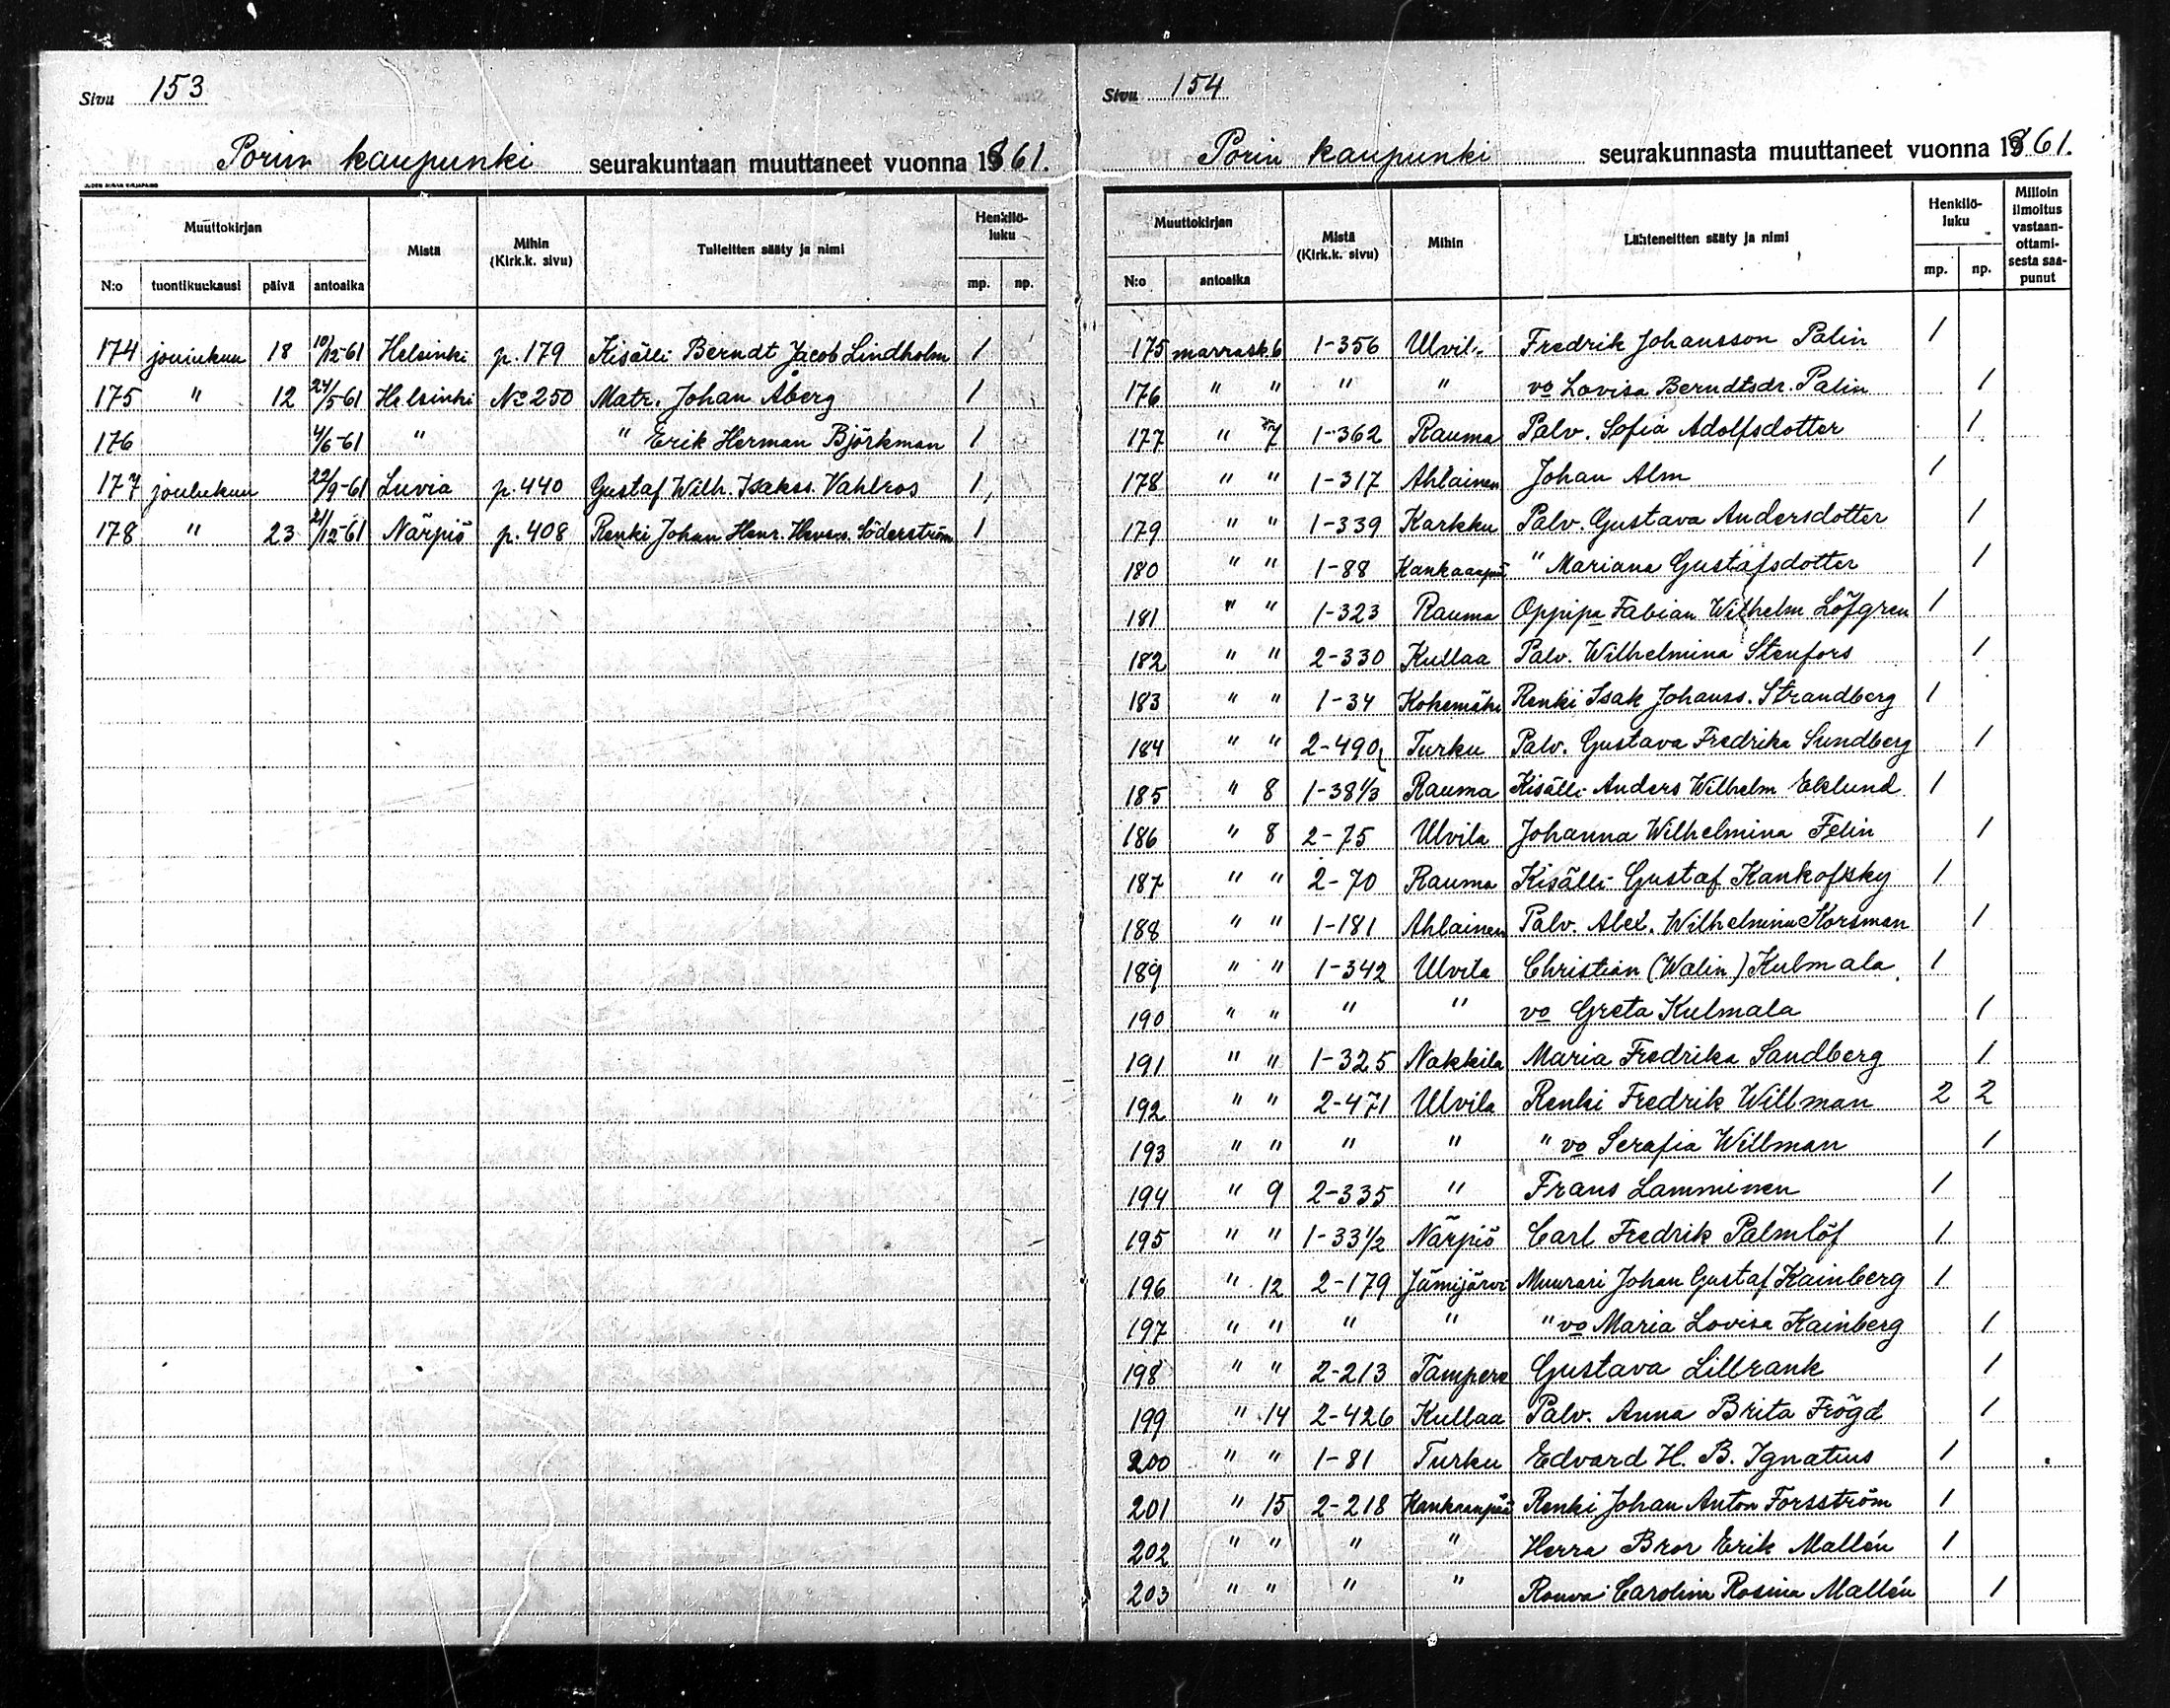 Sivu 153
Porin kaupunki seurakuntaan muuttaneet vuonna 1861.
Muuttokirjan Mistä Mihin (Kirk.k. sivu) Tulleitten sääty ja nimi Henkilö-luku
N:o tuontikuukausi päivä antoaika mp. np.
174 jouiukuu 18 10/12-61 Helsinki p. 179 Kisälli Berndt Jacob Lindholm 1
175 " 12 24/5-61 Helsinki No 250 Matr. Johan Åberg 1
176 4/6-61 " " Erik Herman Björkman 1
177 joulukuu 22/9-61 Luvia p. 440 Gustaf Wilh. Isakss. Vahlros 1
178 " 23 21/12-61 Närpiö p. 408 Renki Johan Henr. Söderström 1
Sivu 154
Porin kaupunki seurakunnasta muuttaneet vuonna 1861.
Muuttokirjan Mistä (Kirk.k. sivu) Mihin Lähteneitten sääty ja nimi Henkilö-luku Milloin ilmoitus vastaan-ottami-sesta saa-punut
N:o antoaika mp. np.
175 marrask. 6 1-356 Ulvil. Fredrik Johansson Palin 1
176 " " " " vo Lovisa Berndtsdr. Palin 1
177 " 7 1-362 Rauma Palv. Sofia Adolfsdotter 1
178 " " 1-317 Ahlainen Johan Alm 1
179 " " 1-339 Karkku Palv. Gustava Andersdotter 1
180 " " 1-88 Kankaanpää " Mariana Gustafsdotter 1
181 " " 1-323 Rauma Oppipa Fabian Wilhelm Löfgren 1
182 " " 2-330 Kullaa Palv. Wilhelmina Stenfors 1
183 " " 1-34 Kokemäki Renki Isak Johanss. Strandberg 1
184 " " 2-490 Turku Palv. Gustava Fredrika Sundberg 1
185 " 8 1-38 1/3 Rauma Kisälli Anders Wilhelm Eklund 1
186 " 8 2-75 Ulvila Johanna Wilhelmina Felin 1
187 " " 2-70 Rauma Kisälli Gustaf Kankofsky 1
188 " " 1-181 Ahlainen Palv. Alex. Wilhelmina Korsman 1
189 " " 1-342 Ulvila Christian (Walin) Kulmala 1
190 " " " " vo Greta Kulmala 1
191 " " 1-325 Nakkila Maria Fredrika Sandberg 1
192 " " 2-471 Ulvila Renki Fredrik Willman 2 2
193 " " " " " vo Serafia Willman 1
194 " 9 2-335 " Frans Lamminen 1
195 " " 1-33 1/2 Närpiö Carl Fredrik Palmlöf 1
196 " 12 2-179 Jämijärvi Muurari Johan Gustaf Kainberg 1
197 " " " " " vo Maria Lovisa Kainberg 1
198 " " 2-213 Tampere Gustava Lillrank 1
199 " 14 2-426 Kullaa Palv. Anna Brita Frögd 1
200 " " 1-81 Turku Edvard H. B. Ignatius 1
201 " 15 2-218 Kankaanpää Renki Johan Anton Forsström 1
202 " " " " Herra Bror Erik Mallén 1
203 " " " " Rouva Carolina Rosina Mallén 1